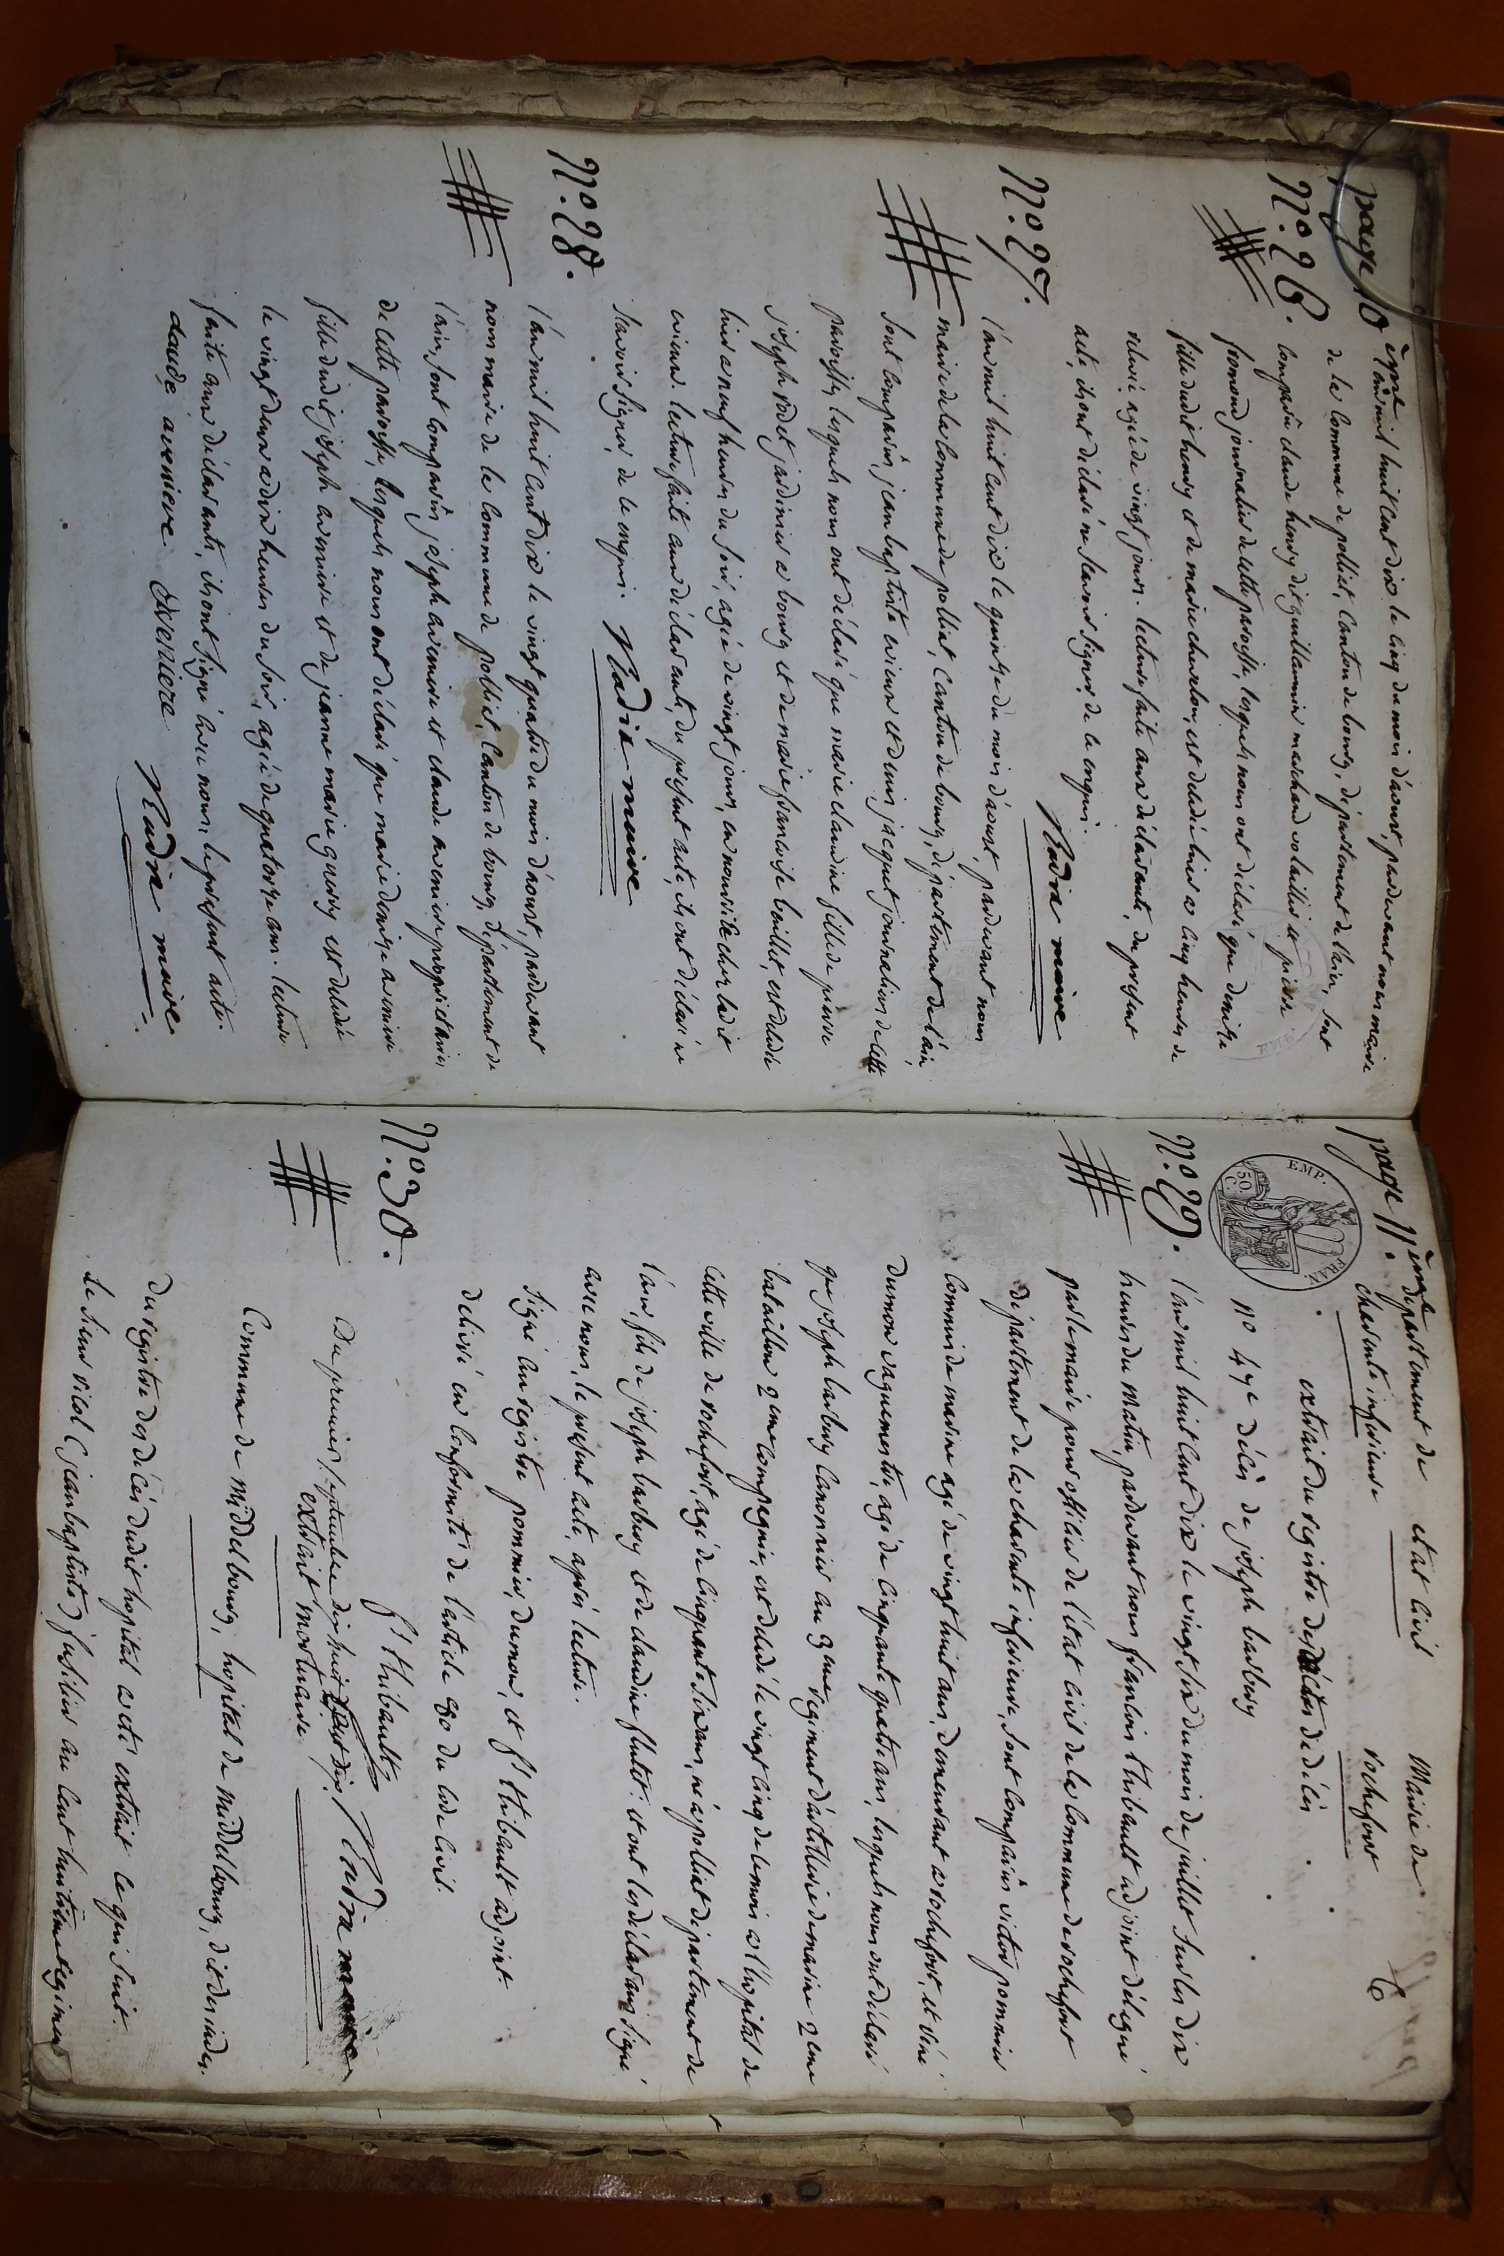 page 10 ème
N°. 26.
l'an mil huit cent dix le cinq du mois d'aoust, pardevant nous maire
de la commune de polliat, canton de bourg, département de l'ain, sont
comparûs claude henry dit guillaumin marchand volaillier et pierre
fromond journalier de cette paroisse, lesquels nous ont déclaré que denize
fille dudit henry et de marie chevelon, est décédé hier a cinq heures de
relevé, agée de vingt jours. lecture faite aux déclarants, du présent
acte, ils ont déclaré ne scavoir signer de ce enquis.
Nadra maire
N°. 27.
l'an mil huit cent dix le quinze du mois d'aoust, pardevant nous
maire de la commune de polliat, canton de bourg, département de l'ain
sont comparûs, jean baptiste et denis jacquet journaliers de cette
paroisse, lesquels nous ont déclaré que marie claudine fille de pierre
joseph jardinier a bourg et de marie francoise est décédé
hier a neuf heures du soir, agée de vingt jours, en nourrice chez ledit
lecture faite aux déclarants, du présent acte, ils ont déclaré ne
scavoir signer, de ce enquis. Nadra maire
N°. 28.
l'an mil huit cent dix le vingt quatre du mois d'aoust, pardevant
nous maire de la commune de polliat, canton de bourg, département de
l'ain, sont comparûs joseph aveniere et claude aveniere propriétaires
de cette paroisse, lesquels nous ont déclaré que marie denize aveniere
fille dudit joseph aveniere et de jeanne marie est décédé
le vingt deux a dix heures du soir, agée de quatorze ans. lecture
faite aux déclarants, ils ont signé avec nous, le présent acte.
claude aveniere aveniere Nadra maire
page 11. ème
département de etat civil Mairie de
charente inférieure rochefort
extrait du registre des actes de décès
N°. 29.
no 49e décès de joseph barbery
l'an mil huit cent dix le vingt six du mois de juillet sur les dix
heures du matin, pardevant nous francois thibault adjoint délégué
par le maire pour officier de l'état civil de la commune de rochefort
département de la charente inférieure, sont comparûs victor pommier
commis de marine agé de vingt huit ans, demeurant a rochefort, et réné
dumon vaguemestre, agé de cinquante quatre ans, lesquels nous ont déclaré
que joseph barbery canonnier au 3eme régiment d'artillerie de marine 2eme
bataillon 2eme compagnie, est décédé le vingt cinq de ce mois a l'hopital de
cette ville de rochefort, agé de cinquante six ans, né a polliat département de
l'ain, fils de joseph barbery et de claudine et ont les déclarans signé
avec nous, le présent acte, après lecture.
Signé au registre pommier, dumon, et f. thibault adjoint.
délivré en conformité de l'article 80 du code civil.
f. thibault
N°. 30.
Du premier septembre dix huit cent dix, Nadra maire
extrait mortuaire.
Commune de middelbourg, hopital de middelbourg, dit des indes.
Du registre des décès dudit hopital a été extrait le qui suit.
Le sieur (jean baptiste) fusilier au cent huitième régiment
EMP. FRAN. 50. C.